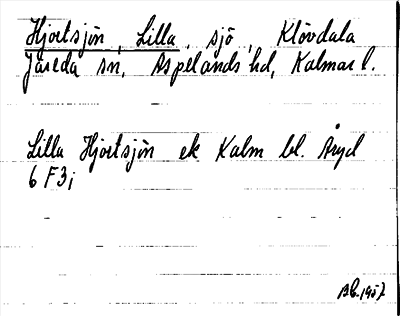 Hjortsjön, Lilla, sjö, Klövdala
Järeda sn, Aspelands hd, Kalmar l.
Lilla Hjortsjön ek Kalm bl. Åryd
6 F3j